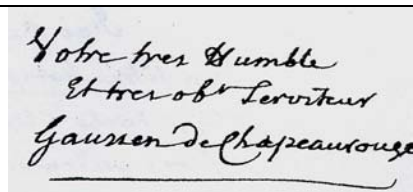 Votre tres Humble
Et tres obt Serviteur
Gaussen de Chapeaurouge